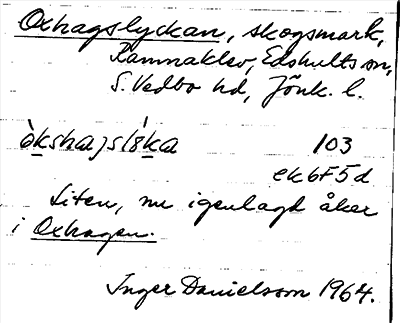 Oxhagslyckan, skogsmark,
Ramnaklev, Edshults sn,
S. Vedbo hd, Jönk. l.
òkshagslẏ́ka 103
ek 6F5d
Liten, nu igenlagd åker
i Oxhagen.
Inger Danielsson 1964.